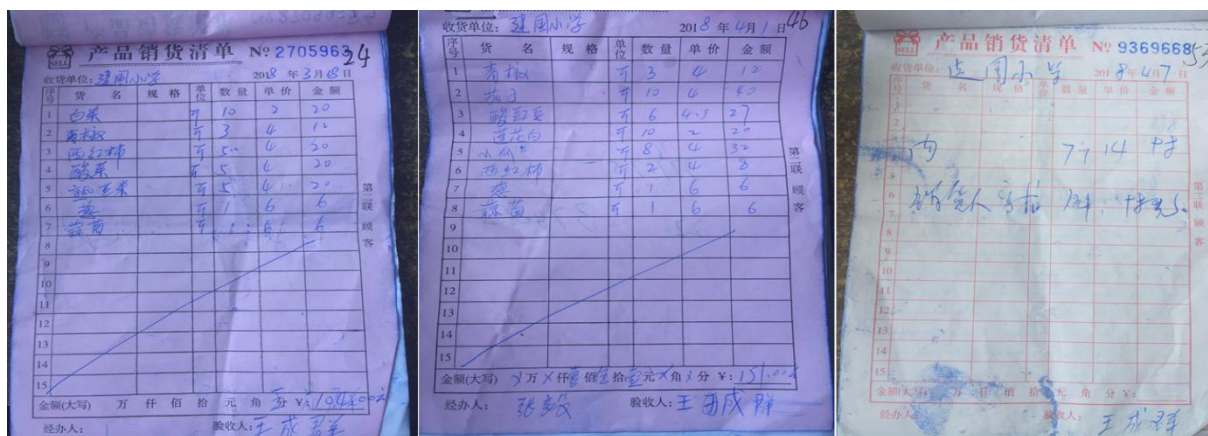 产品销货清单 №2705963 24
收货单位: 建国小学 2018年3月18日
序号 货 名 规 格 单位 数 量 单 价 金 额
1 白菜 斤 10 2 20
2 青椒 斤 3 4 12
3 西红柿 斤 5 4 20
4 酸菜 斤 5 4 20
5 斤 5 4 20
6 葱 斤 1 6 6
7 蒜苗 斤 1 6 6
8
9
10
11
12
13
14
15
金额(大写) 万 仟 佰 拾 元 角 分 ¥:104.00
经办人: 验收人: 王成群
第二联 顾客
46
收货单位: 建国小学 2018年4月1日
序号 货 名 规 格 单位 数 量 单 价 金 额
1 青椒 斤 3 4 12
2 茄子 斤 10 4 40
3 酸豇豆 斤 6 4.5 27
4 莲花白 斤 10 2 20
5 小瓜 斤 8 4 32
6 西红柿 斤 2 4 8
7 葱 斤 1 6 6
8 蒜苗 斤 1 6 6
9
10
11
12
13
14
15
金额(大写) 万 仟 佰 拾 元 角 分 ¥:151.00
经办人: 验收人: 王成群
第二联 顾客
产品销货清单 №9369668 53
收货单位: 建国小学 2018年4月7日
序号 货 名 规 格 单位 数 量 单 价 金 额
肉 7斤 14
销货人
金额(大写) 万 仟 佰 拾 元 角 分 ¥:
经办人: 验收人: 王成群
第二联 顾客